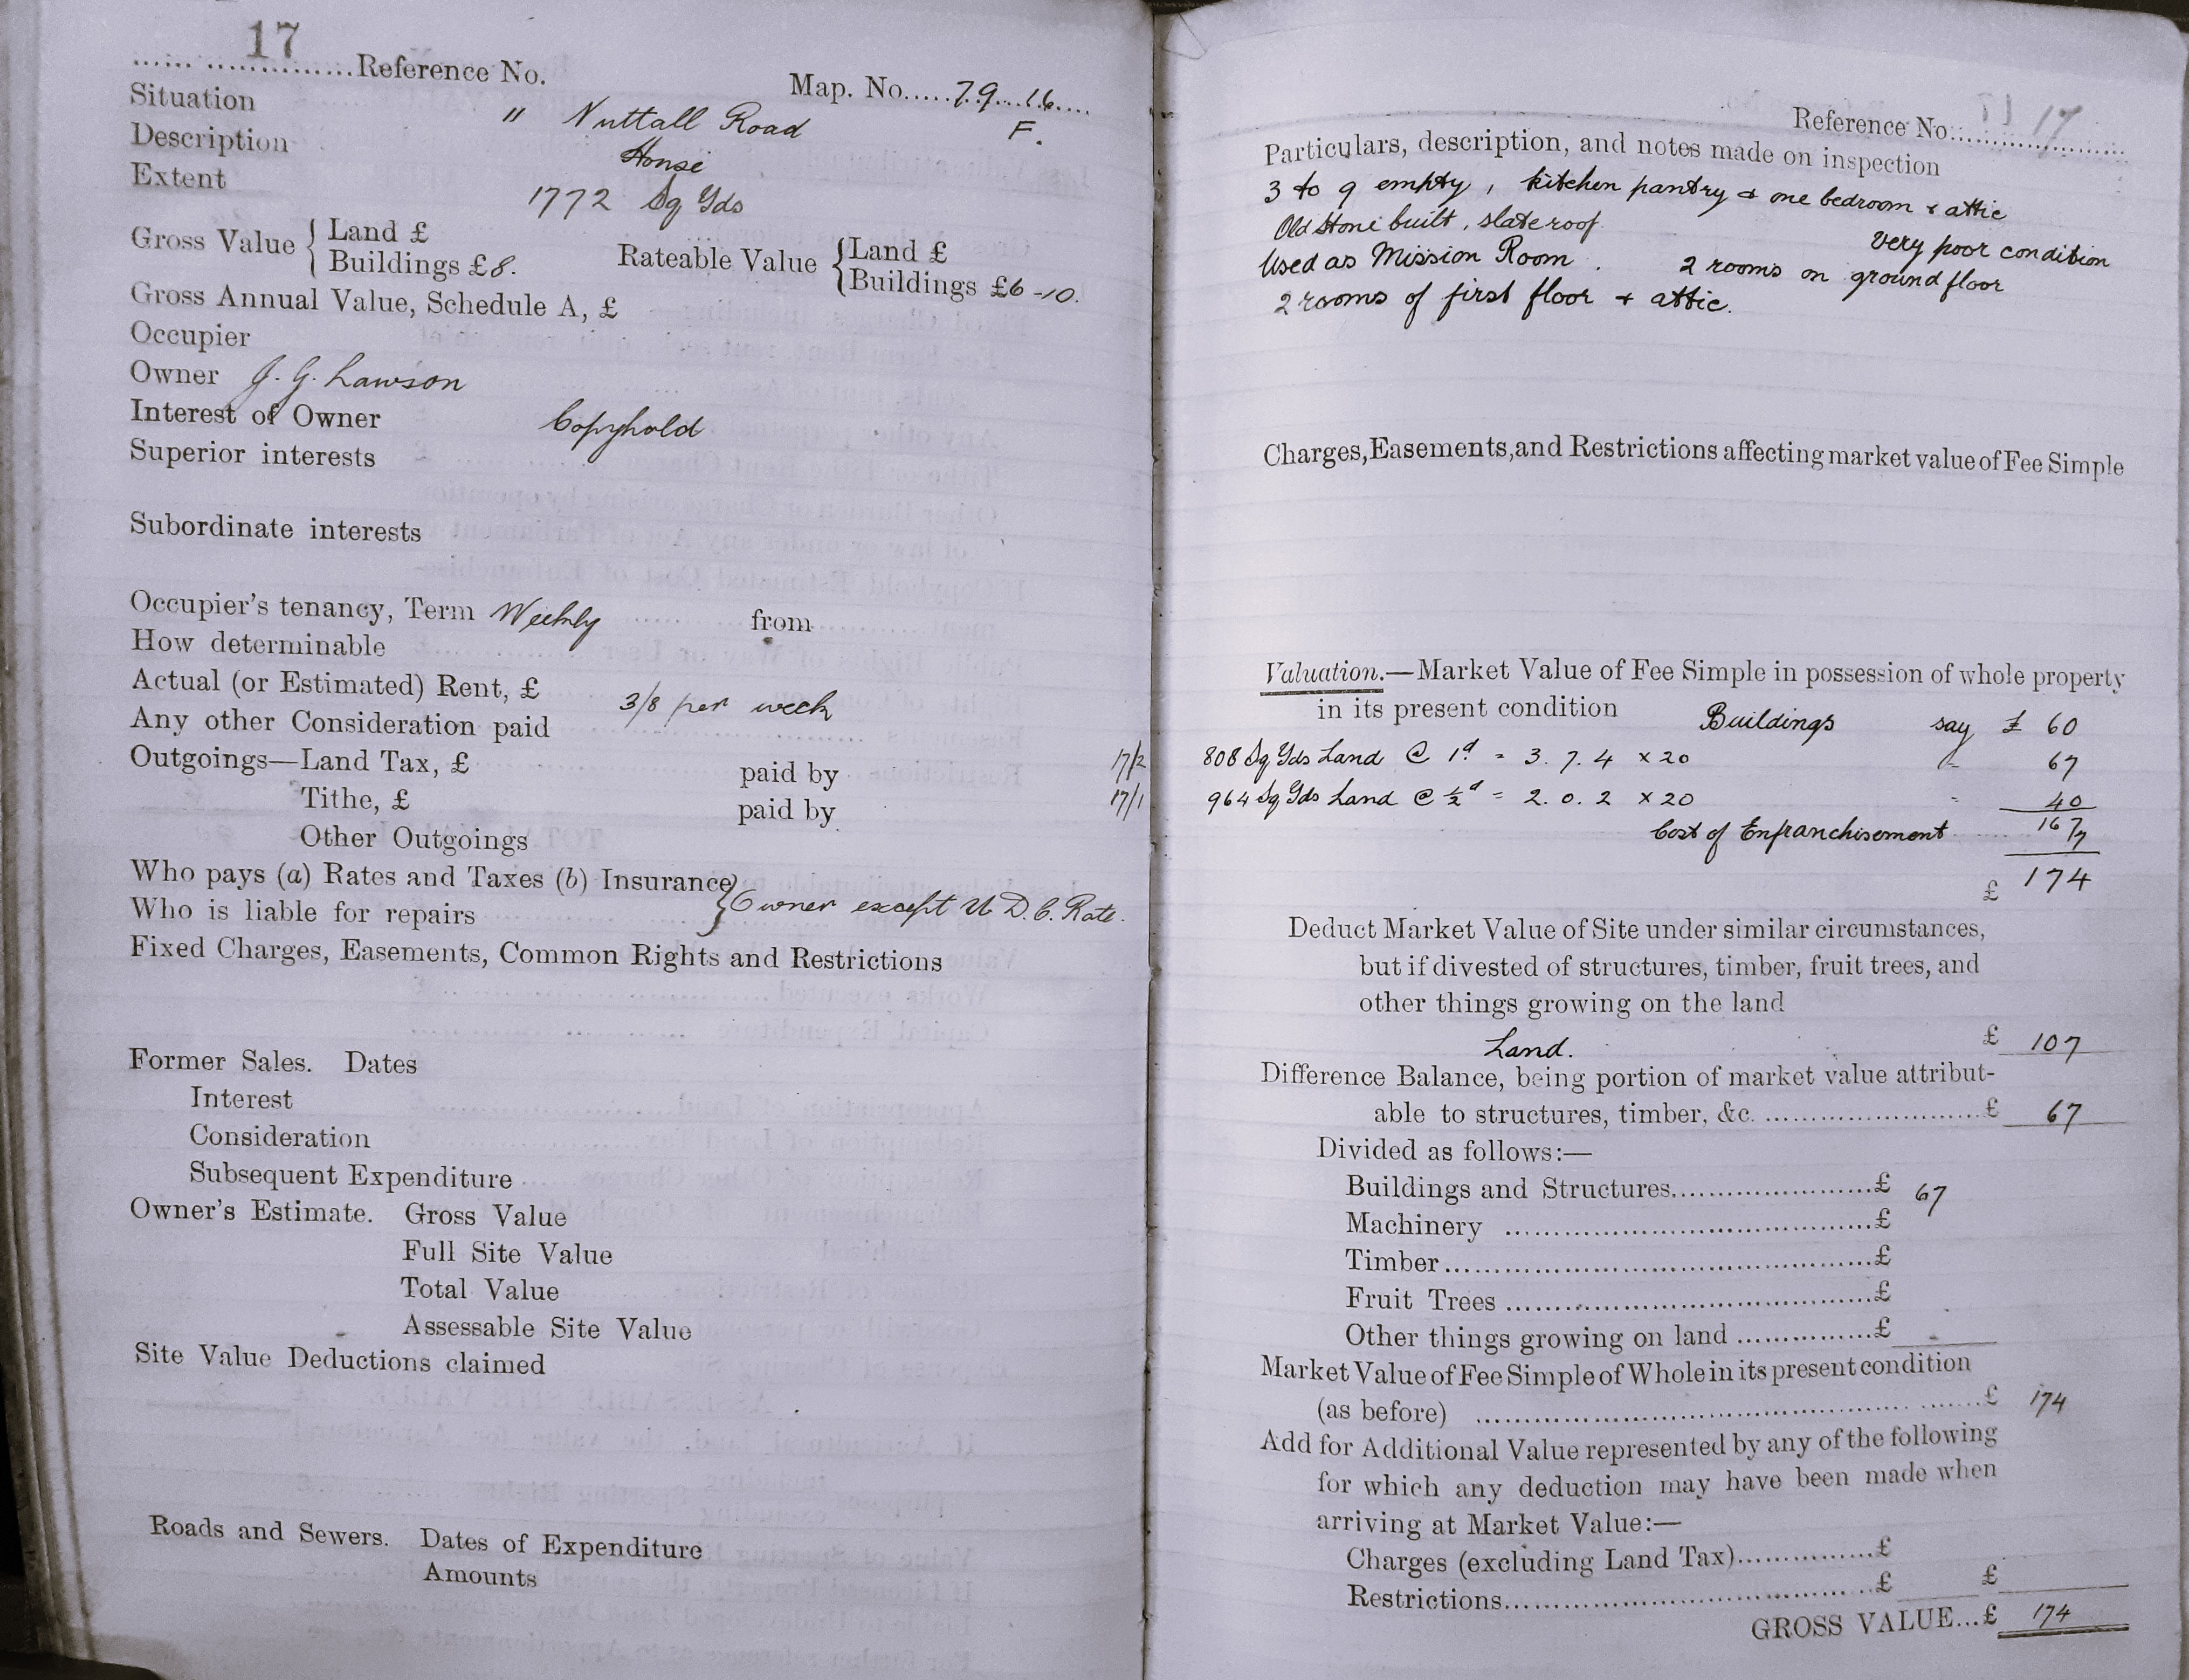 17
...... ...............Reference No.
Map. No.....79..16....
F.
Situation " Nuttall Road
Description House
Extent 1772 Sq Yds
Gross Value { Land £
Buildings £8.
Rateable Value { Land £
Buildings £6-10.
Gross Annual Value, Schedule A, £
Occupier
Owner J. G. Lawson
Interest of Owner Copyhold
Superior interests
Subordinate interests
Occupier's tenancy, Term Weekly from
How determinable
Actual (or Estimated) Rent, £ 3/8 per week
Any other Consideration paid
Outgoings—Land Tax, £ paid by
Tithe, £ paid by
Other Outgoings
Who pays (a) Rates and Taxes (b) Insurance
Who is liable for repairs } Owner except U.D.C. Rate.
Fixed Charges, Easements, Common Rights and Restrictions
Former Sales. Dates
Interest
Consideration
Subsequent Expenditure
Owner's Estimate. Gross Value
Full Site Value
Total Value
Assessable Site Value
Site Value Deductions claimed
Roads and Sewers. Dates of Expenditure
Amounts
Reference No. 17
Particulars, description, and notes made on inspection
3 to 9 empty, kitchen pantry & one bedroom & attic
Old Stone built, slate roof. very poor condition
Used as Mission Room. 2 rooms on ground floor
2 rooms of first floor + attic.
Charges, Easements, and Restrictions affecting market value of Fee Simple
Valuation.—Market Value of Fee Simple in possession of whole property
in its present condition Buildings say £ 60
17/2 808 Sq Yds Land @ 1d = 3. 7. 4 x 20 67
17/1 964 Sq Yds Land @ ½d = 2. 0. 2 x 20 40
167
Cost of Enfranchisement 7
£ 174
Deduct Market Value of Site under similar circumstances,
but if divested of structures, timber, fruit trees, and
other things growing on the land
Land. £ 107
Difference Balance, being portion of market value attribut-
able to structures, timber, &c. ........................£ 67
Divided as follows:—
Buildings and Structures.......................£ 67
Machinery ..........................................£
Timber.................................................£
Fruit Trees ..........................................£
Other things growing on land ................£
Market Value of Fee Simple of Whole in its present condition
(as before) ..................................................£ 174
Add for Additional Value represented by any of the following
for which any deduction may have been made when
arriving at Market Value:—
Charges (excluding Land Tax)................£
Restrictions..........................................£ £
GROSS VALUE...£ 174